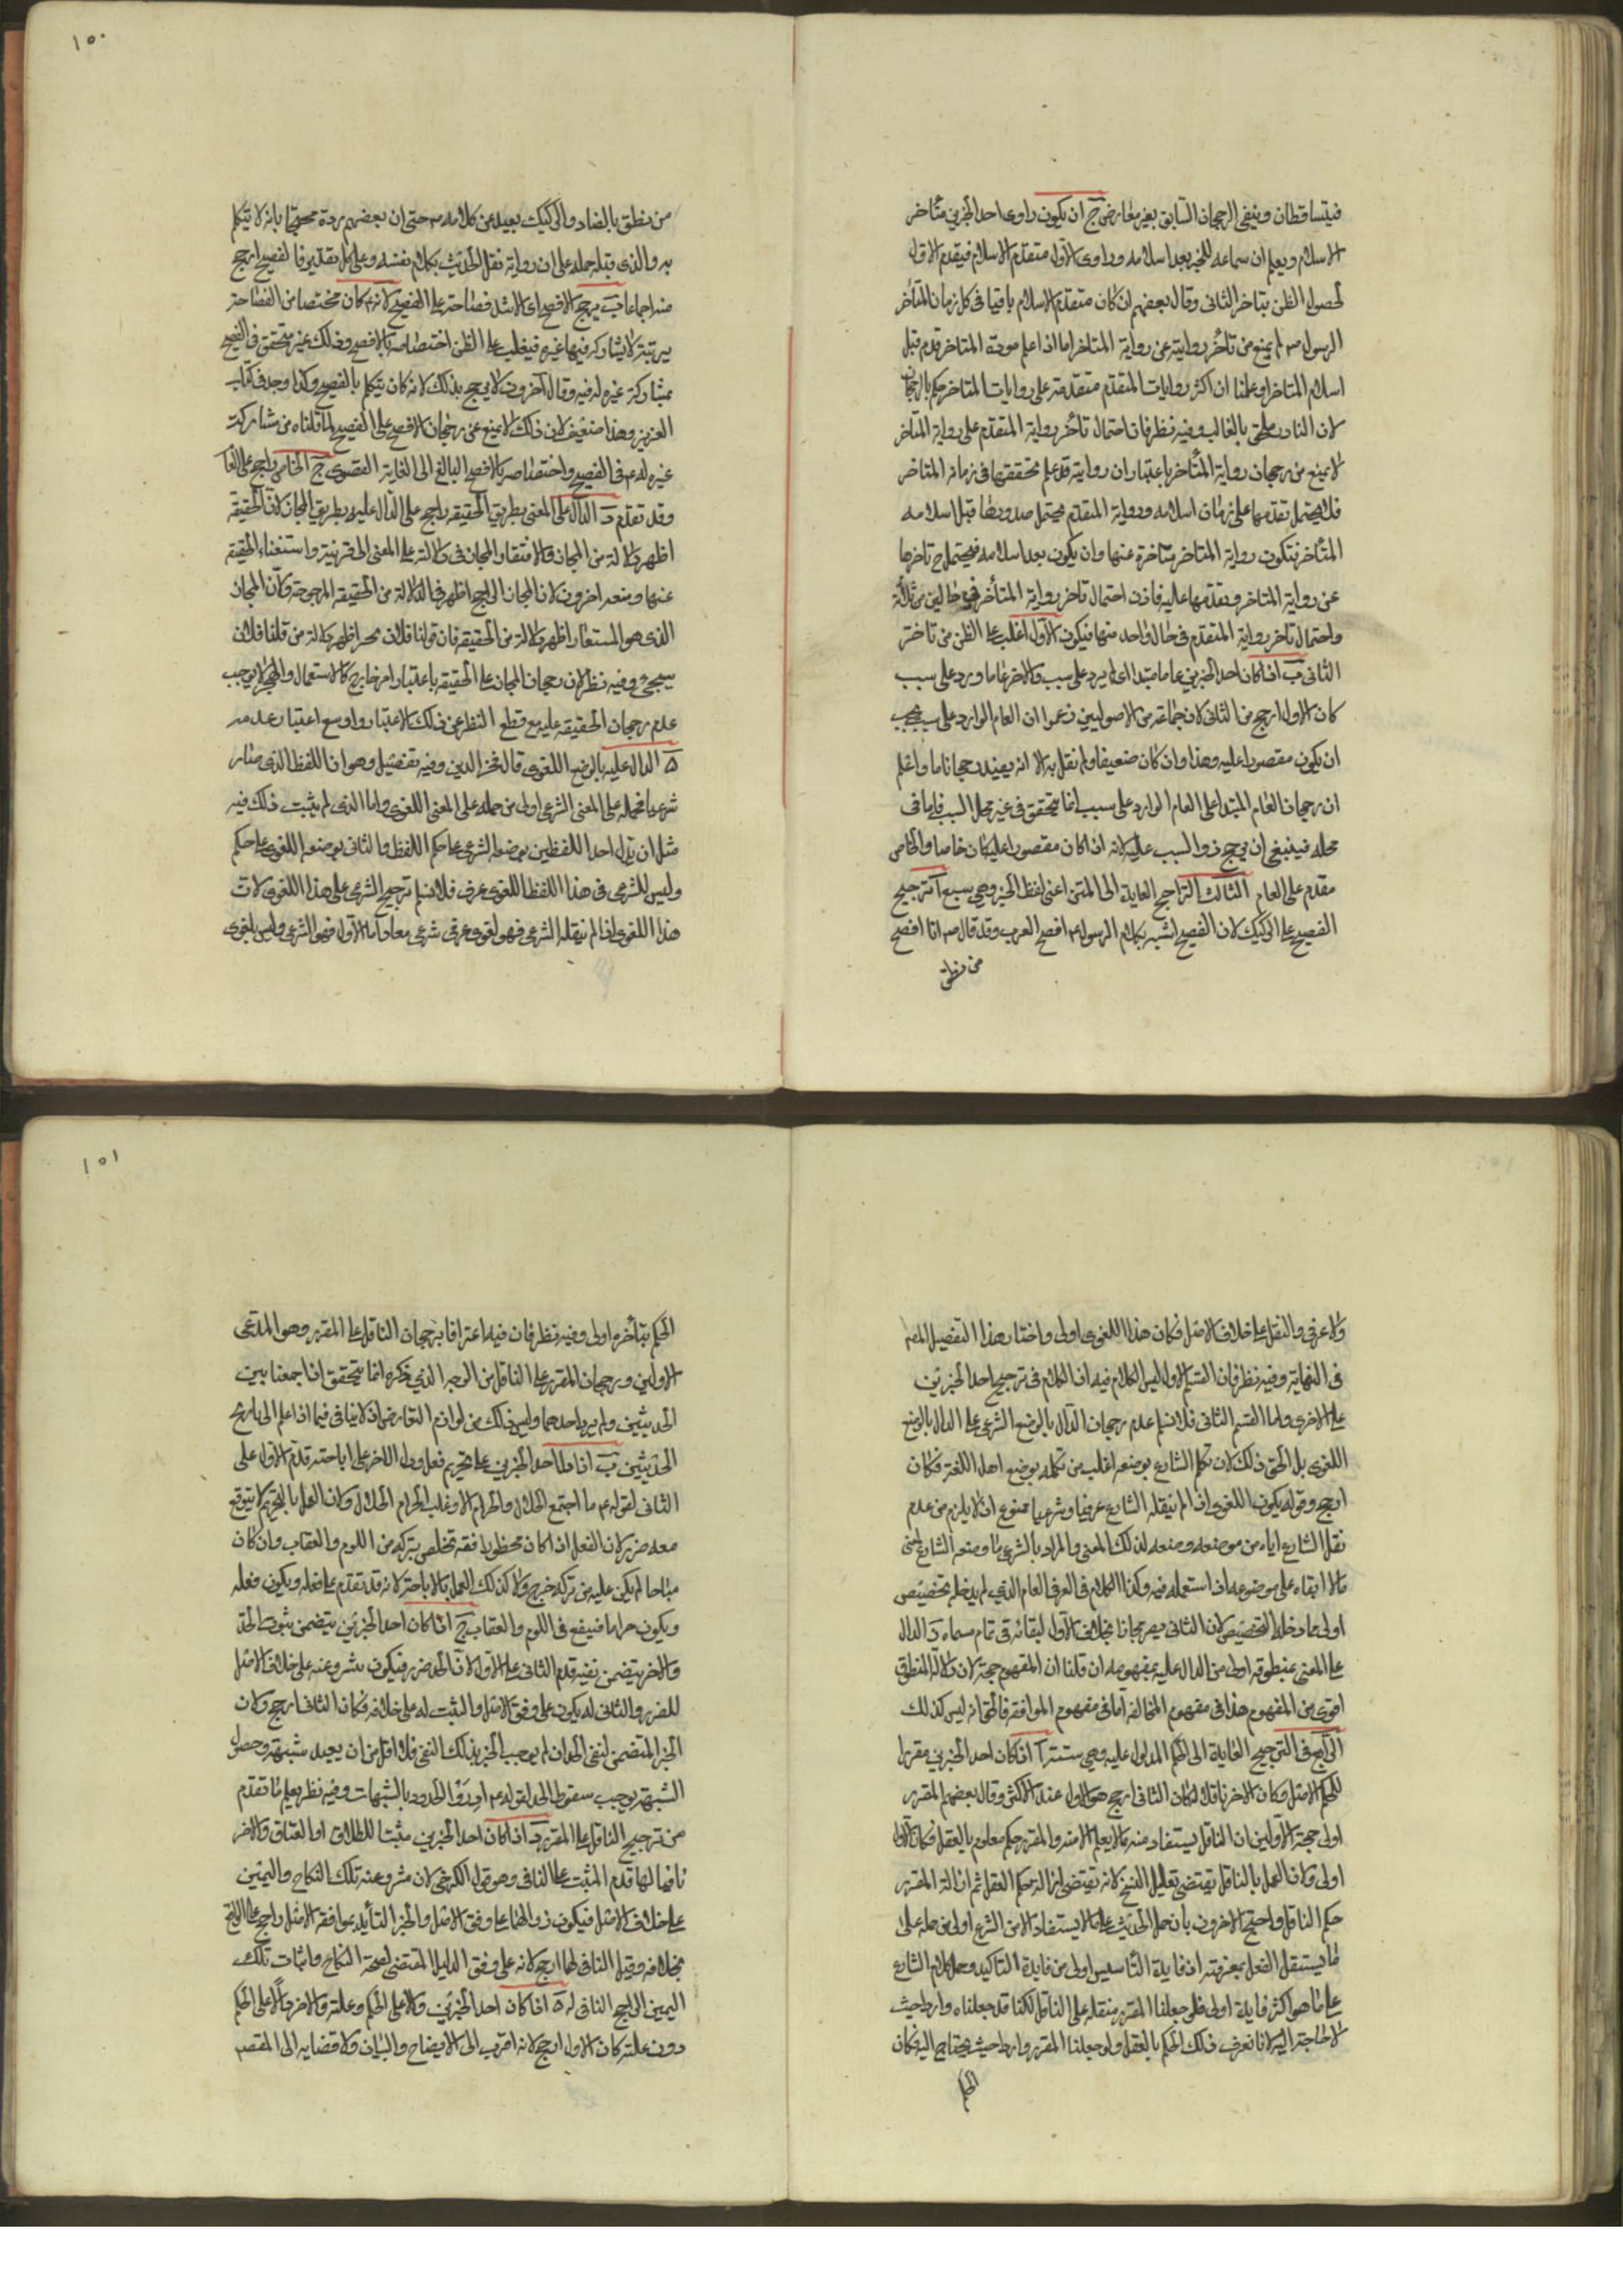 ١٥٠
فيتساقطان وينفى الرجحان السابق بغير معارض ج ان يكون راوى احد الخبرين متأخر
الاسلام ويعلم ان سماعه للخبر بعد اسلامه وراوى الاول متقدم الاسلام فيقدم الاول
لحصول الظن بتاخر الثانى وقال بعضهم ان كان متقدم الاسلام باقيا فى كل زمان المتأخر
الرسول ص لم يمنع من تأخر روايته عن رواية المتاخر اما اذا علم موت المتاخر قدم قبل
اسلام المتاخر او علمنا ان اكثر روايات المتقدم متقدمة على روايات المتاخر حكم بالرجحان
لان النادر ملحق بالغالب وفيه نظر فان احتمال تأخر رواية المتقدم على رواية المتاخر
لا يمنع من رجحان رواية المتأخر باعتبار ان روايته قد علم تحققها فى زمانه المتاخر
فلا يحتمل تقدمها على زمان اسلامه ورواية المتقدم يحتمل صدورها قبل اسلامه
المتأخر فتكون رواية المتاخر متاخرة عنها وان يكون بعد اسلامه فيحتمل ح تاخرها
عن رواية المتاخر وتقدمها عليه فاذن احتمال تاخر رواية المتأخر فى حالين من ثلاثة
واحتمال تاخر رواية المتقدم فى حال واحد منها فيكون الاول اغلب على الظن من تاخر
الثانى ب اذا كان احد الخبرين عاما مبتدا اى لم يرد على سبب والاخر عاما ورد على سبب
كان الاول ارجح من الثانى لان جماعة من الاصوليين زعموا ان العام الوارد على سبب يجب
ان يكون مقصورا عليه وهذا وان كان ضعيفا ولم نقل به الا انه يفيد رجحانا ما واعلم
ان رجحان العام المبتدا على العام الوارد على سبب انما يتحقق فى غير محل السبب فاما فى
محله فينبغى ان يرجح ذو السبب عليه لانه اذا كان مقصورا عليه كان خاصا والخاص
مقدم على العام الثالث التراجيح العايدة الى المتن اعنى لفظ الخبر وهى سبع آ ترجيح
الفصيح على الركيك لان الفصيح اشبه بكلام الرسول ع م افصح العرب وقد قال ص انا افصح
من نطق
من نطق بالضاد والركيك بعيد عن كلامه ص حتى ان بعضهم رده محتجا بانه لا يتكلم
به والذى قبله حمله على ان رواية نقل الحديث بكلام نفسه وعلى كل تقدير فالفصيح ارجح
منه اجماعا ب يرجح الافصح اى الاشد فصاحة على الفصيح لانه ع م كان مختصا من الفصاحة
بمرتبة لا يشاركه فيها غيره فيغلب على الظن اختصاصه بالافصح وذلك غير متحقق فى الفصيح
بمشاركة غيره له فيه وقال آخرون لا يرجح بذلك لانه كان يتكلم بالفصيح وكذا وجد فى الكتاب
العزيز وهذا ضعيف لان ذلك لا يمنع عن رجحان الافصح على الفصيح لما قلناه من مشاركة
غيره له ع م فى الفصيح واختصاصه بالافصح البالغ الى الغاية القصوى ج الخاص راجح على العام
وقد تقدم د الدال على المعنى بطريق الحقيقة راجح على الدال عليه بطريق المجاز لان الحقيقة
اظهر دلالة من المجاز ولافتقار المجاز فى دلالته على المعنى الى قرينة واستغناء الحقيقة
عنها ومنعه اخرون لان المجاز الراجح اظهر فى الدلالة من الحقيقة المرجوحة ولان المجاز
الذى هو المستعار اظهر دلالة من الحقيقة فان قولنا فلان بحر اظهر دلالة من قولنا فلان
سخى وفيه نظر لان رجحان المجاز على الحقيقة باعتبار امر خارج كالاستعمال والظهور لا يوجب
عدم رجحان الحقيقة عليه مع قطع النظر عن ذلك الاعتبار واوسع اعتبار عدمه
ه الدال عليه بالوضع اللغوى قال فخر الدين وفيه تفصيل وهو ان اللفظ الذى صار
شرعيا فحمله على المعنى الشرعى اولى من حمله على المعنى اللغوى واما الذى لم يثبت ذلك فيه
مثل ان يدل احد اللفظين بوضعه الشرعى على حكم اللفظ والثانى بوضعه اللغوى على حكم
وليس للشرعى فى هذا اللفظ اللغوى عرف فلا نسلم ترجيح الشرعى على هذا اللغوى لان
هذا اللغوى اذا لم ينقله الشرعى فهو لغوى عرفى شرعى معا واما الاول فهو الشرعى وليس بلغوى
١٥١
ولا عرفى والنقل على خلاف الاصل فكان هذا اللغوى اولى واختار هذا التفصيل المص
فى النهاية وفيه نظر فان القسم الاول ليس الكلام فيه اذ الكلام فى ترجيح احد الخبرين
على الاخرى واما القسم الثانى فلا نسلم عدم رجحان الدال بالوضع الشرعى على الدال بالوضع
اللغوى بل الحق ذلك لان تكلم الشارع بوضعه اغلب من تكلمه بوضع اهل اللغة فكان
ارجح وقوله يكون اللغوى اذا لم ينقله الشارع عرفيا وشرعيا ممنوع اذ لا يلزم من عدم
نقل الشارع اياه من موضعه وضعه لذلك المعنى والمراد بالشرعى ما وضعه الشارع لمعنى
مالا ابقاه على موضوعه اذا استعمله فيه وكذا الكلام فى العرفى العام الذى لم يدخله تخصيص
اولى مما دخله التخصيص لان الثانى يصير مجازا بخلاف الاول لبقائه فى تمام مسماه د الدال
على المعنى بمنطوقه اولى من الدال عليه بمفهومه ان قلنا ان المفهوم حجة لان دلالة المنطوق
اقوى من المفهوم هذا فى مفهوم المخالفة اما فى مفهوم الموافقة فالحق انه ليس كذلك
الرابع فى الترجيح العايدة الى الحكم المدلول عليه وهى ستة آ اذا كان احد الخبرين مقررا
لحكم الاصل وكان الاخر ناقلا كان الثانى ارجح من الاول عند الاكثر وقال بعضهم المقرر
اولى حجة الاولين ان الناقل يستفاد منه ما لا يعلم الا منه والمقرر حكم معلوم بالعقل فكان الاول
اولى ولان العمل بالناقل يقتضى تقليل النسخ لانه يقتضى ازالة حكم العقل ثم ازالة المقرر
حكم الناقل واحتج الاخرون بأن حمل الحديث على ما لا يستفاد الا من الشرع اولى من حمله على
ما يستقل العقل بمعرفته اذ فايدة التأسيس اولى من فايدة التاكيد وحمل كلام الشارع
على ما هو اكثر فايدة اولى فلو جعلنا المقرر متقدما على الناقل لكنا قد جعلناه واردا حيث
لا حاجة اليه لانا نعرف ذلك الحكم بالعقل ولو جعلنا المقرر واردا حيث يحتاج اليه فكان
الحكم
الحكم بتأخره اولى وفيه نظر فان فيه اعترافا برجحان الناقل على المقرر وهو المدعى
الاولين ورجحان المقرر على الناقل من الوجه الذى ذكره انما يتحقق اذا جمعنا بين
الحديثين ولم يرد احدهما وليس ذلك من لوازم التعارض اذ لا ينافى فيما اذا علم التاريخ
الحديثين ب اذا دل احد الخبرين على تحريم فعل ودل الاخر على اباحته قدم الاول على
الثانى لقوله ع م ما اجتمع الحلال والحرام الا وغلب الحرام الحلال ولان العمل بالتحريم لا يتوقع
معه ضرر لان الفعل اذا كان محظورا فقد تخلص بتركه من اللوم والعقاب وان كان
مباحا لم يكن عليه فى تركه حرج ولا كذلك العمل بالاباحة لانه قد تقدم على فعله ويكون فعله
ويكون حراما فيقع فى اللوم والعقاب ج اذا كان احد الخبرين يتضمن ثبوت الحد
والاخر يتضمن نفيه قدم الثانى على الاول لان الحد ضرر فيكون مشروعيته على خلاف الاصل
للضرر والثانى له يكون على وفق الاصل والمثبت له على خلافه فكان الثانى ارجح ولان
الخبر المتضمن لنفى الحد ان لم يوجب الجزم بذلك النفى فلا اقل من ان يفيد شبهة وحصول
الشبهة يوجب سقوط الحد لقوله ع م ادرؤا الحدود بالشبهات وفيه نظر يعلم مما تقدم
من ترجيح الناقل على المقرر د اذا كان احد الخبرين مثبتا للطلاق او العتاق والاخر
نافيا لها قدم المثبت على النافى وهو قول الكرخى لان مشروعية تلك النكاح واليمين
على خلاف الاصل فيكون زوالهما على وفق الاصل والخبر المتأيد بموافقة الاصل راجح على الواقع
بخلافه وقيل النافى لها ارجح لانه على وفق الدليل المقتضى لصحة النكاح واثبات تلك
اليمين الراجح النافى له ه اذا كان احد الخبرين دالا على الحكم وعلته والاخر دالا على الحكم
دون علته كان الاول ارجح لانه اقرب الى الايضاح والبيان ولافضايه الى المقصد